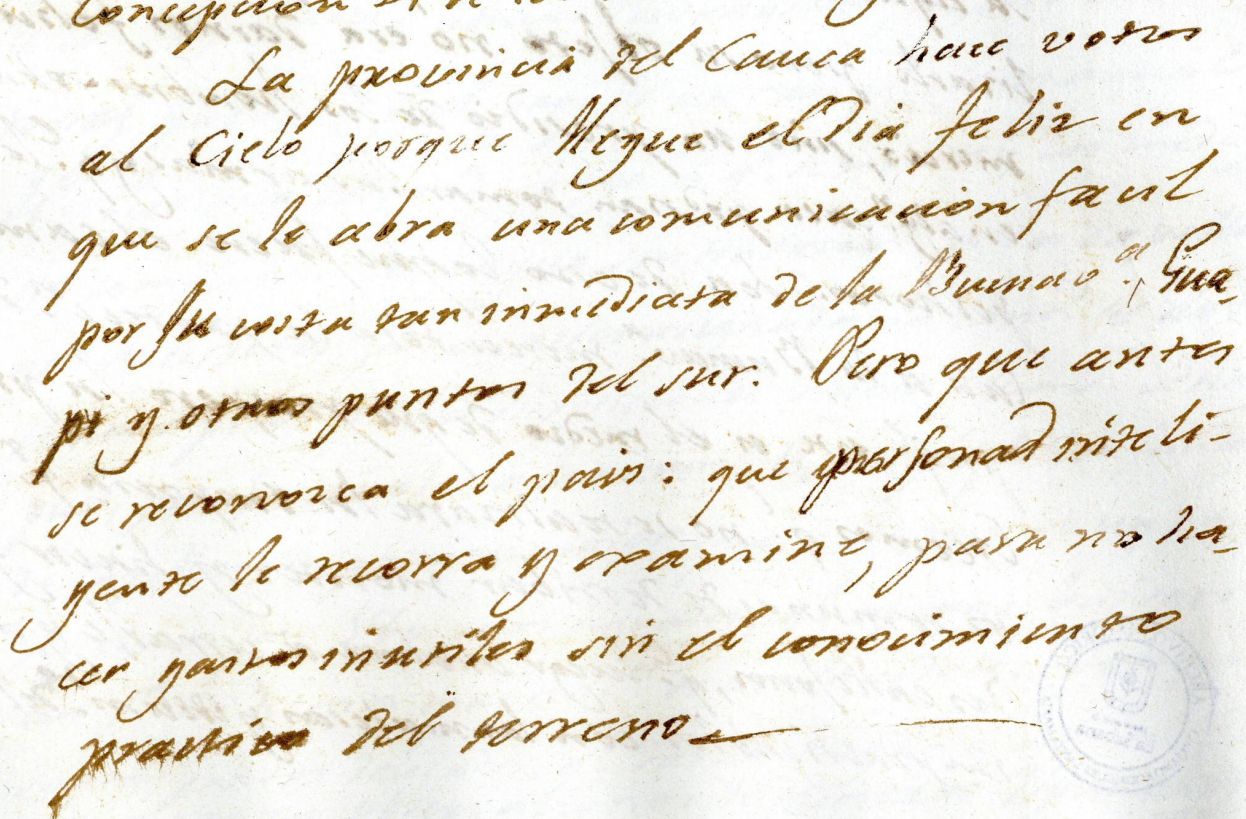 Concepcion el
La provincia del Cauca hace votos
al Cielo porque llegue el dia feliz en
que se le abra una comunicacion facil
por su costa tan inmediata de la Buenav.a, Gua-
pi y otros puntos del sur. Pero que antes
se reconozca el pais: que personas inteli-
gente le recorra y examine, para no ha-
cer gastos inutiles sin el conocimiento
practico del terreno